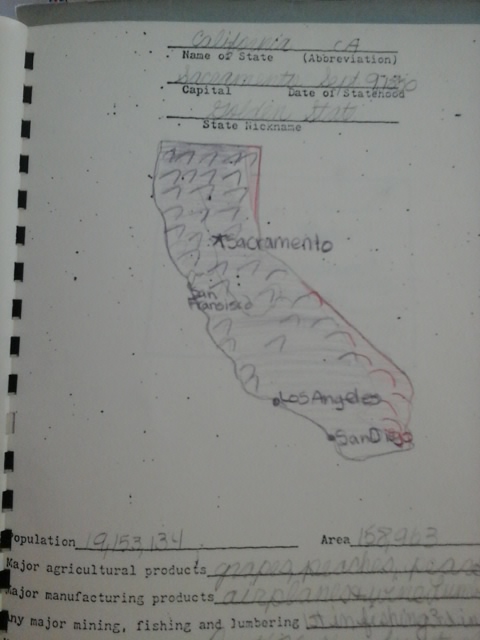 California CA
Name of State (Abbreviation)
Sacramento Sept 9, 1850
Capital Date of Statehood
Golden State
State Nickname
Sacramento
San
Francisco
Los Angeles
San Diego
Population 19,153,134
Area 158,963
Major agricultural products grapes, peaches,
Major manufacturing products airplanes
ny major mining, fishing and lumbering